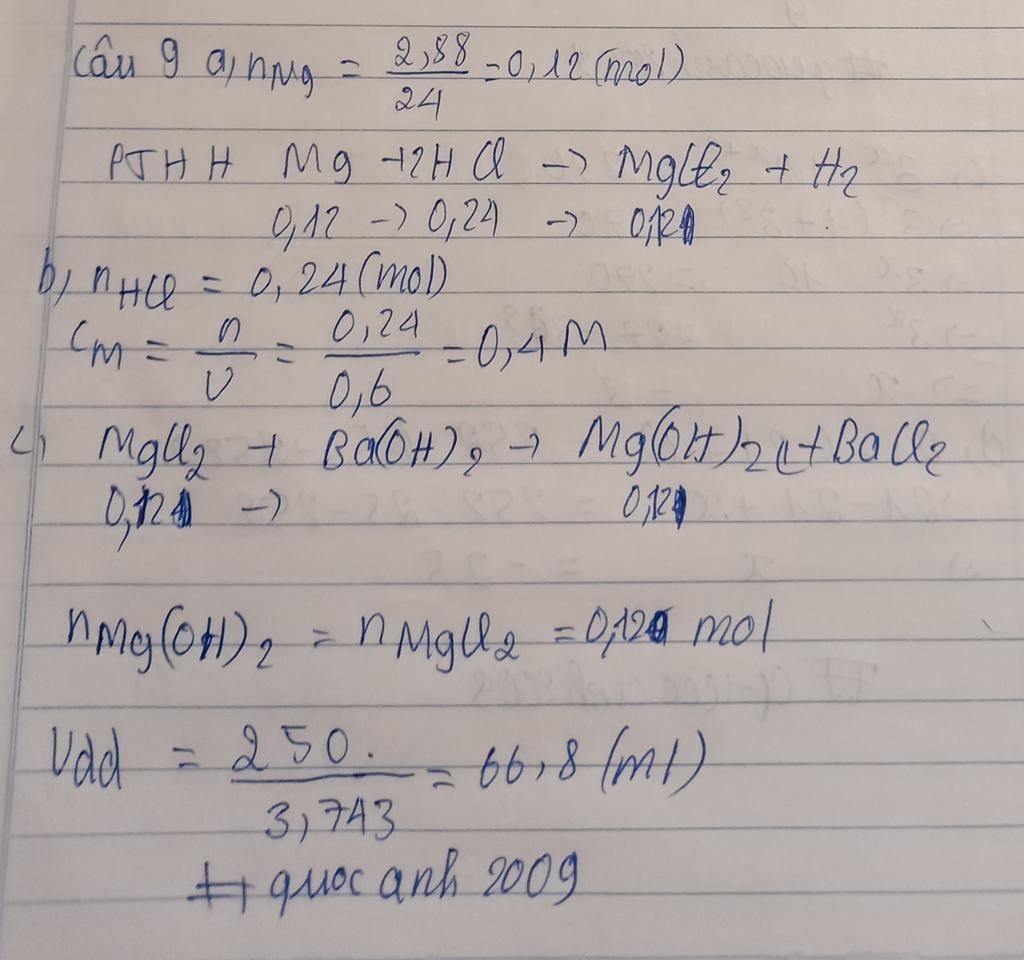 Câu 9 a, nMg = 2,88/24 = 0,12 (mol)
PTHH Mg + 2HCl -> MgCl2 + H2
0,12 -> 0,24 -> 0,12
b, nHCl = 0,24 (mol)
CM = n/V = 0,24/0,6 = 0,4 M
c, MgCl2 + Ba(OH)2 -> Mg(OH)2↓ + BaCl2
0,12 -> 0,12
nMg(OH)2 = nMgCl2 = 0,12 mol
Vdd = 250./3,743 = 66,8 (ml)
# quoc anh 2009